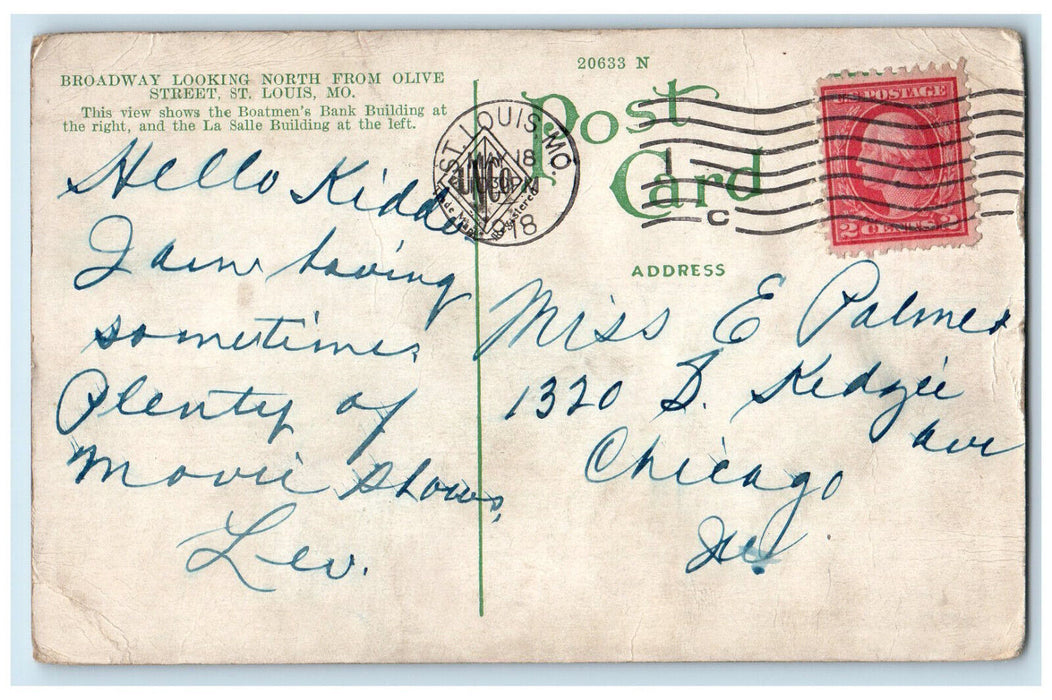 BROADWAY LOOKING NORTH FROM OLIVE
STREET, ST. LOUIS, MO.
This view shows the Boatmen's Bank Building at
the right, and the La Salle Building at the left.
20633 N
Post
Card
ST. LOUIS, MO.
18
30 PM
1918
1
C
U.S. POSTAGE
2 CENTS 2
ADDRESS
Hello Kiddo.
I am having
sometime.
Plenty of
Movie Shows,
Lev.
Miss E Palmer
1320 S. Kedzie
Ave
Chicago
Ill.